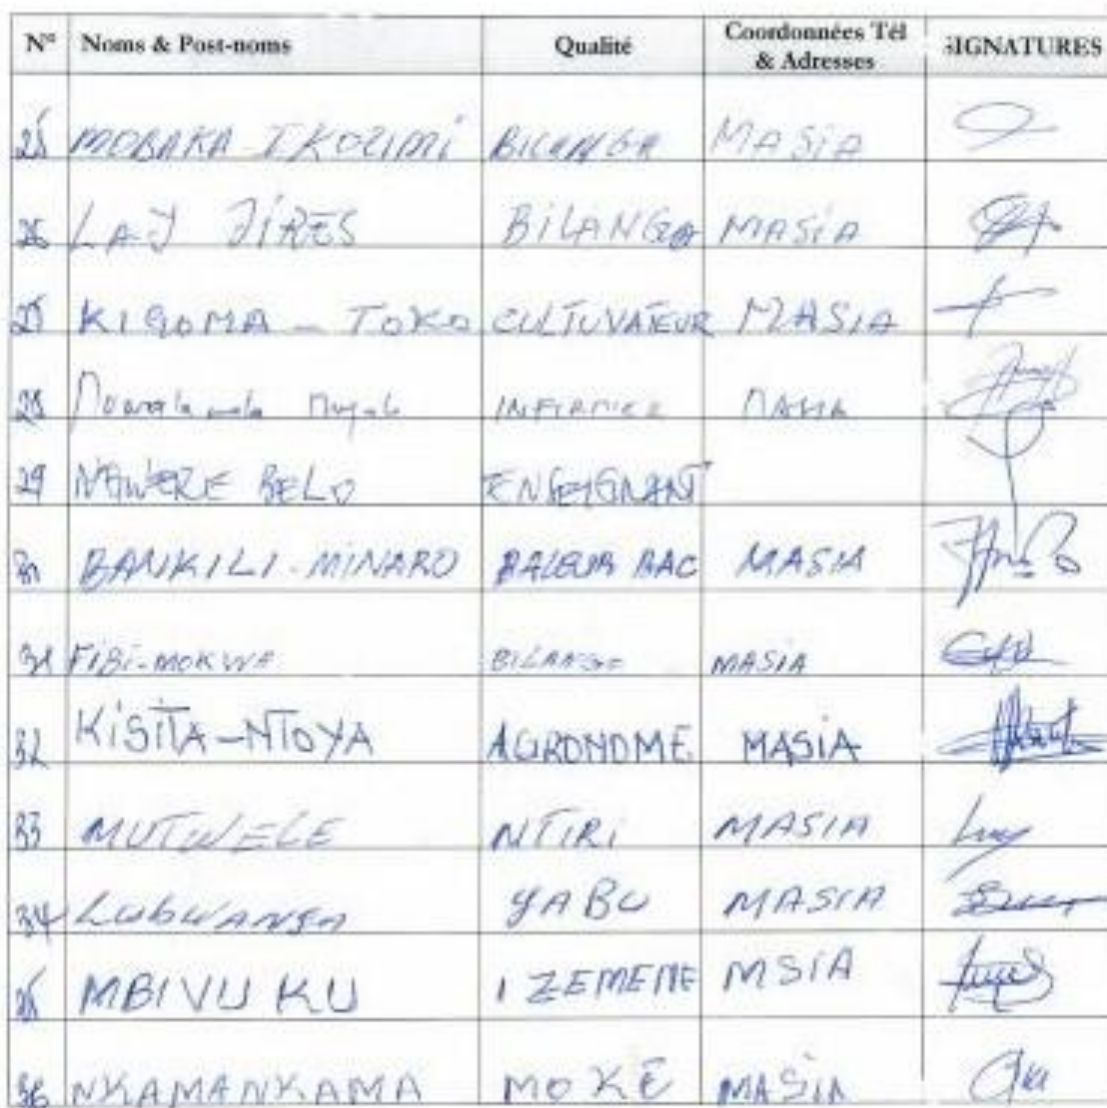 N° Noms & Post-noms Qualité Coordonnées Tél & Adresses SIGNATURES
25 MOBAKA IKOZIMI BILANGA MASIA
26 LA-J JIRES BILANGA MASIA
27 KIGOMA - TOKO CULTUVATEUR MASIA
28 INFIRMIER MASIA
29 NAWERE BELO ENSEIGNANT
30 BANKILI-MINARO BALEUR BAC MASIA
31 FIBI-MOKWA BILANGA MASIA
32 KISITA-NTOYA AGRONOME MASIA
33 MUTWELE NTIRI MASIA
34 LUBWANGA YABU MASIA
35 MBIVU KU IZEMEME MSIA
36 NKAMANKAMA MOKE MASIA